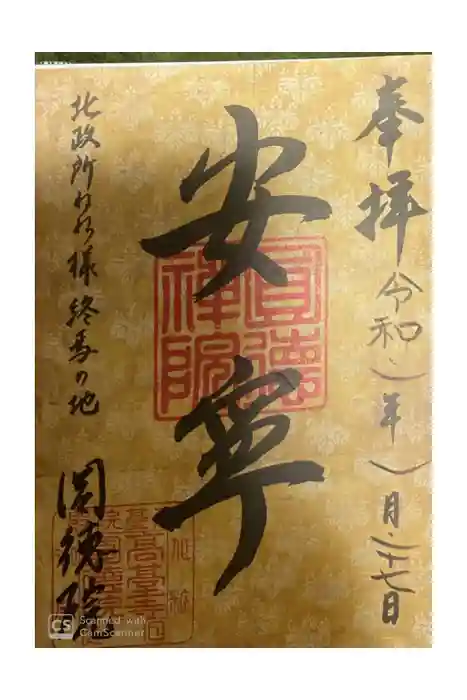 奉拝 令和 年 月 十七日
安寧
北政所ねね様終焉の地
圓徳院
圓徳
禅院
Scanned with
CamScanner